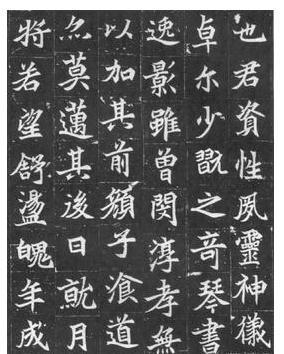 也君資性夙靈神儀
卓尔少翫之竒琴書
逸影雖曾閔淳孝無
以加其前顏子湌道
亦莫邁其後日就月
将若望舒盪魄年成